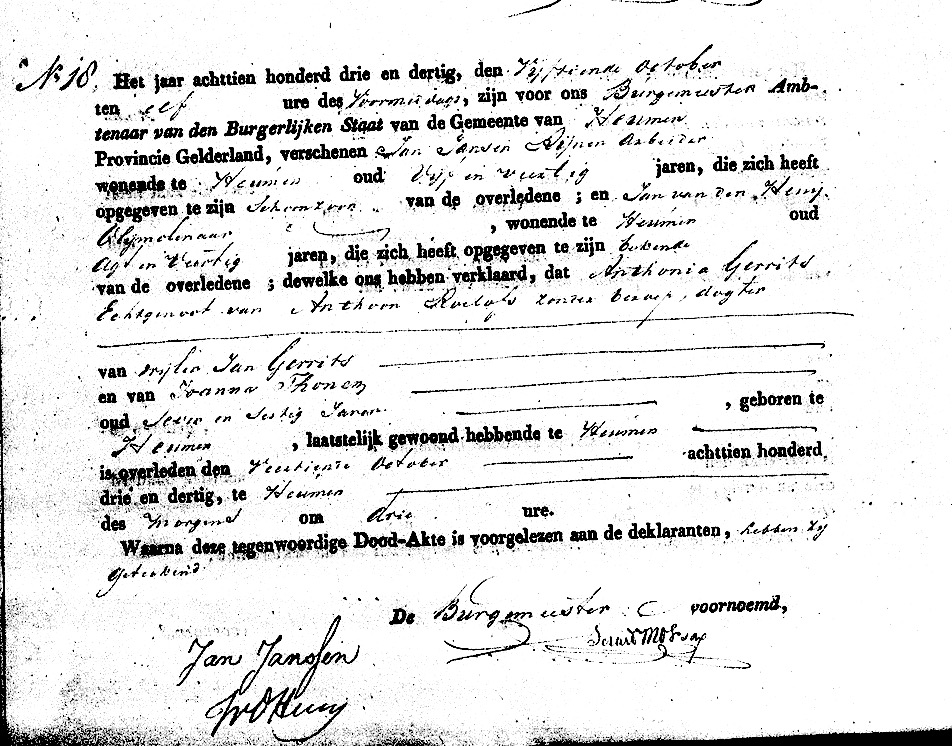 No 18. Het jaar achttien honderd drie en dertig, den Vyftiende October
ten elf ure des Voormiddags, zijn voor ons Burgemeester Amb-
tenaar van den Burgerlijken Staat van de Gemeente van Heumen
Provincie Gelderland, verschenen Jan Jansen Arbeider
wonende te Heumen oud Vijf en Veertig jaren, die zich heeft
opgegeven te zijn Schoonzoon van de overledene ; en Jan van den Heuy
Olymolenaar , wonende te Heumen oud
Agt en Veertig jaren, die zich heeft opgegeven te zijn bekende
van de overledene ; dewelke ons hebben verklaard, dat Anthonia Gerrits
Echtgenoot van Anthoon Roelofs zonder beroep, dogter
van wylen Jan Gerrits
en van Joanna Thonen
oud Seven en Sestig Jaren , geboren te
Heumen , laatstelijk gewoond hebbende te Heumen
is overleden den Veertiende October achttien honderd
drie en dertig, te Heumen
des morgens om drie ure.
Waarna deze tegenwoordige Dood-Akte is voorgelezen aan de deklaranten, hebben zy
geteekend
De Burgemeester voornoemd,
Jan Janssen